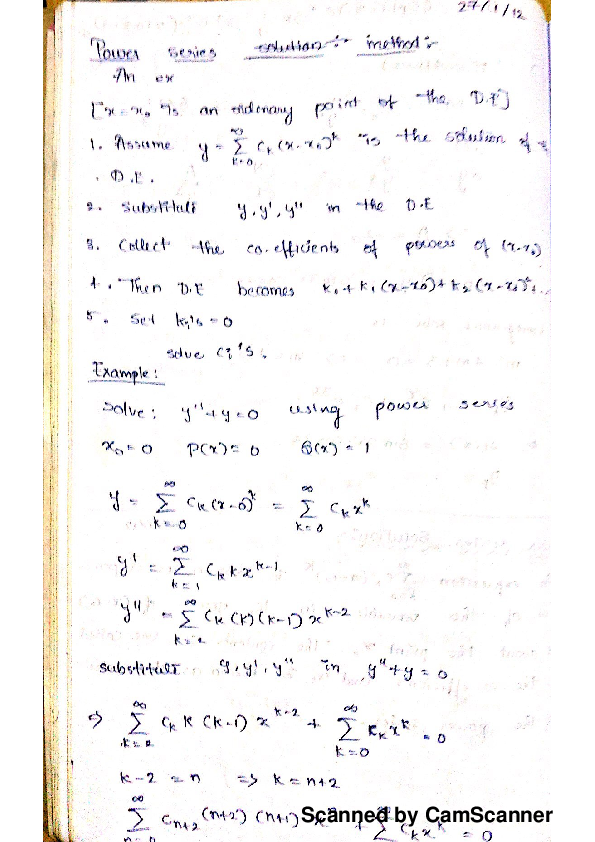 27/1/12
Power series solution :- method :-
An ex
[x = x₀ is an ordenary point of the D.E]
1. Assume y = ∑_{k=0}^{∞} c_k (x-x₀)^k is the solution of
D.E.
2. substituli y, y', y'' in the D.E
3. Collect the co.efficients of powers of (x-x₀)
4. Then D.E becomes k₀ + k₁(x-x₀) + k₂(x-x₀)²+..
5. Set kᵢ's = 0
solve cᵢ's.
Example:
Solve: y''+y=0 using power series
x₀=0 P(x)=0 Q(x)=1
y = ∑_{k=0}^{∞} c_k (x-0)^k = ∑_{k=0}^{∞} c_k x^k
y' = ∑_{k=1}^{∞} c_k k x^{k-1}
y'' = ∑_{k=2}^{∞} c_k (k)(k-1) x^{k-2}
substituli y, y', y'' in y''+y=0
⇒ ∑_{k=2}^{∞} c_k k (k-1) x^{k-2} + ∑_{k=0}^{∞} c_k x^k = 0
k-2 = n ⇒ k = n+2
∑_{n=0}^{∞} c_{n+2} (n+2) (n+1) x^n + ∑^{∞} c_k x^k = 0
Scanned by CamScanner